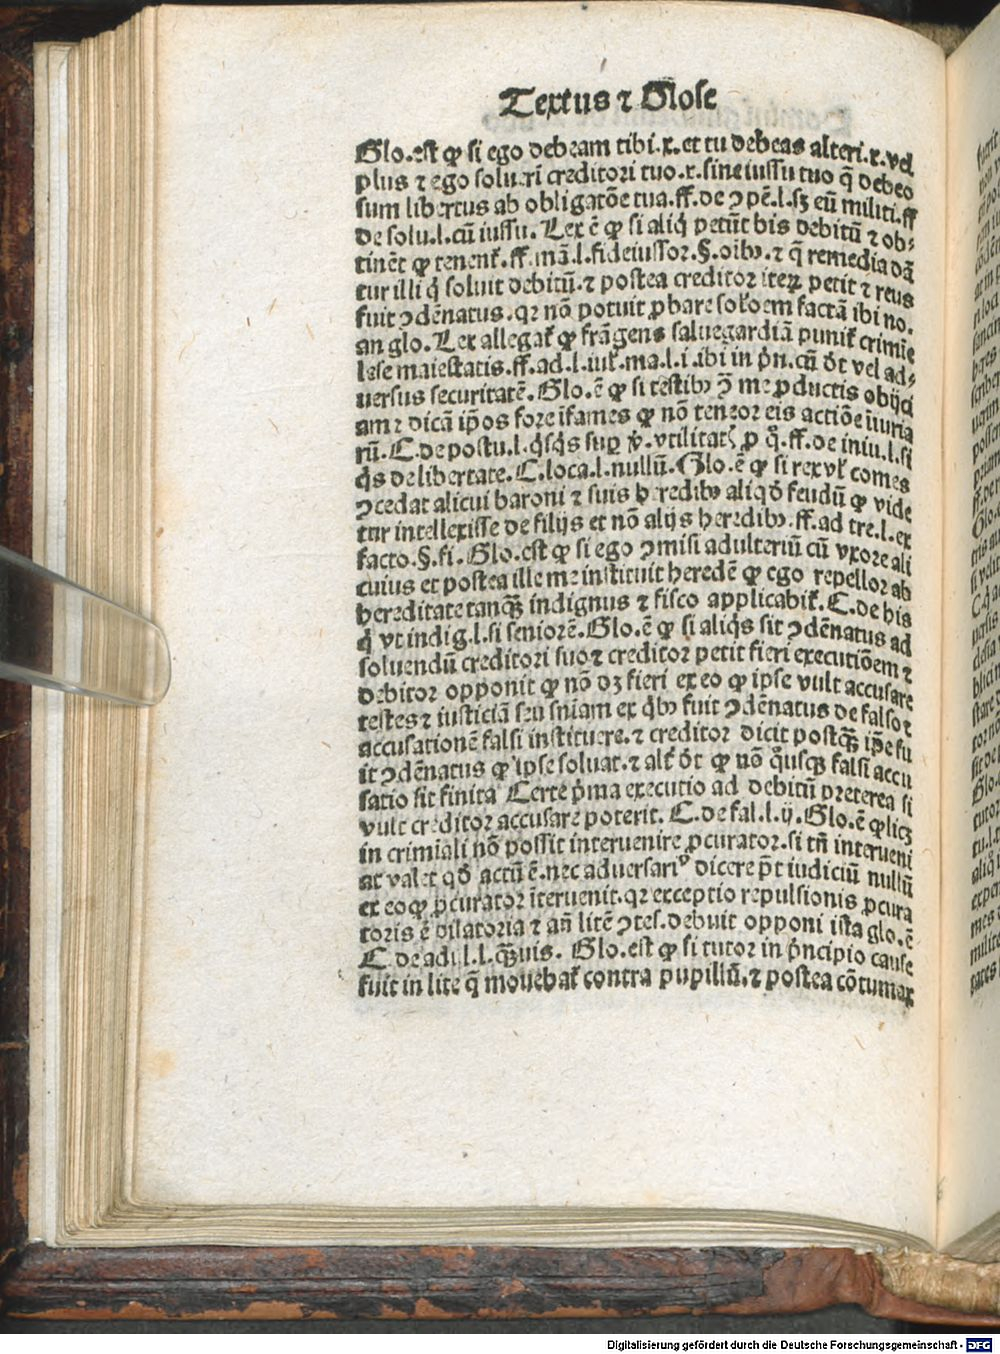 Textus ⁊ Glose
Glo.est ꝙ si ego debeam tibi.x.et tu debeas alteri.x.vel
plus ⁊ ego soluerī creditori tuo.x.sine iussu tuo q̄ debeo
sum libertus ab obligatōe tua.ff.de ↄpē.l.sꝫ eū militi.ff
de solu.l.cū iussu. Lex ē ꝙ si aliq̇ petūt bis debitū ⁊ ob⸗
tinēt ꝙ tenent᷑.ff.mā.l.fideiussor.§.oib᷒.⁊ q̄ remedia dā
tur illi q̇ soluit debitū.⁊ postea creditor iteꝝ petit ⁊ reus
fuit ↄdēnatus.qꝛ nō potuit ꝓbare soluōem factā ibi no.
an glo.Lex allegat᷑ ꝙ frāgens saluegardiā punit᷑ crimīe
lese maiestatis.ff.ad.l.iul᷑.ma.l.i.ibi in p̄n.cū dr̄t vel ad⸗
uersus securitatē.Glo.ē ꝙ si testib᷒ ↄ̄ me ꝓductis obijci
am ⁊ dicā ip̄os fore īfames ꝙ nō teneor eis actiōe īiuria
rū.C.de postu.l.q̇sq̇s sup ꝟ.vtilitatꝭ ꝓ q̊.ff.de iniu.l.si
q̇s de libertate.C.loca.l.nullū.Glo.ē ꝙ si rex vl᷑ comes
ↄcedat alicui baroni ⁊ suis heredib᷒ aliqd̄ feudū ꝙ vide
tur intellexisse de filijs et nō alijs heredib᷒.ff.ad tre.l.ex
facto.§.fi.Glo.est ꝙ si ego ↄmisi adulteriū cū vxore ali
cuius et postea ille me instituit heredē ꝙ ego repellor ab
hereditate tanqꝫ̄ indignus ⁊ fisco applicabit᷑.C.de his
q̇ vt indig.l.si seniorē.Glo.ē ꝙ si aliq̇s sit ↄdēnatus ad
soluendū creditori suo ⁊ creditor petit fieri executiōem ⁊
debitor opponit ꝙ nō dꝫ fieri ex eo ꝙ ipse vult accusare
testes ⁊ iusticiā seu sniam ex q̇b᷒ fuit ↄdēnatus de falso ⁊
accusationē falsi instituere.⁊ creditor dicit postqꝫ̄ ip̄e fu
it ↄdēnatus ꝙ ipse soluat.⁊ alt᷑ dt̄ ꝙ nō q̊usqꝫ falsi accu
satio sit finita Certe p̄ma executio ad debitū preterea si
vult creditor accusare poterit. C.de fal.l.ij.Glo.ē ꝙ licꝫ
in crimiali nō possit interuenire ꝓcurator.si tn̄ interueni
at valet qd̄ actū ē.nec aduersari᷒ dicere p̄t iudiciū nullū
ex eo ꝙ ꝓcurator īteruenit.qꝛ exceptio repulsionis ꝓcura
toris ē dilatoria ⁊ an̄ litē ↄtes.debuit opponi ista glo.ē
C.de adul.l.qꝫ̄uis. Glo.est ꝙ si tutor in p̄ncipio cause
fuit in lite q̄ mouebat᷑ contra pupillū.⁊ postea cōtumax
Digitalisierung gefördert durch die Deutsche Forschungsgemeinschaft - DFG